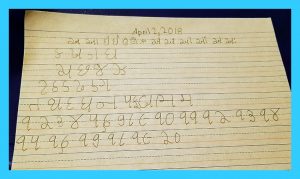 April 2, 2018
અ આ ઇ ઈ ઉ ઊ એ ઐ ઓ ઔ અં અઃ
ક ખ ગ ઘ
ચ છ જ ઝ
ટ ઠ ડ ઢ ણ
ત થ દ ધ ન પ ફ બ ભ મ
૧ ૨ ૩ ૪ ૫ ૬ ૭ ૮ ૯ ૧૦ ૧૧ ૧૨ ૧૩ ૧૪
૧૫ ૧૬ ૧૭ ૧૮ ૧૯ ૨૦